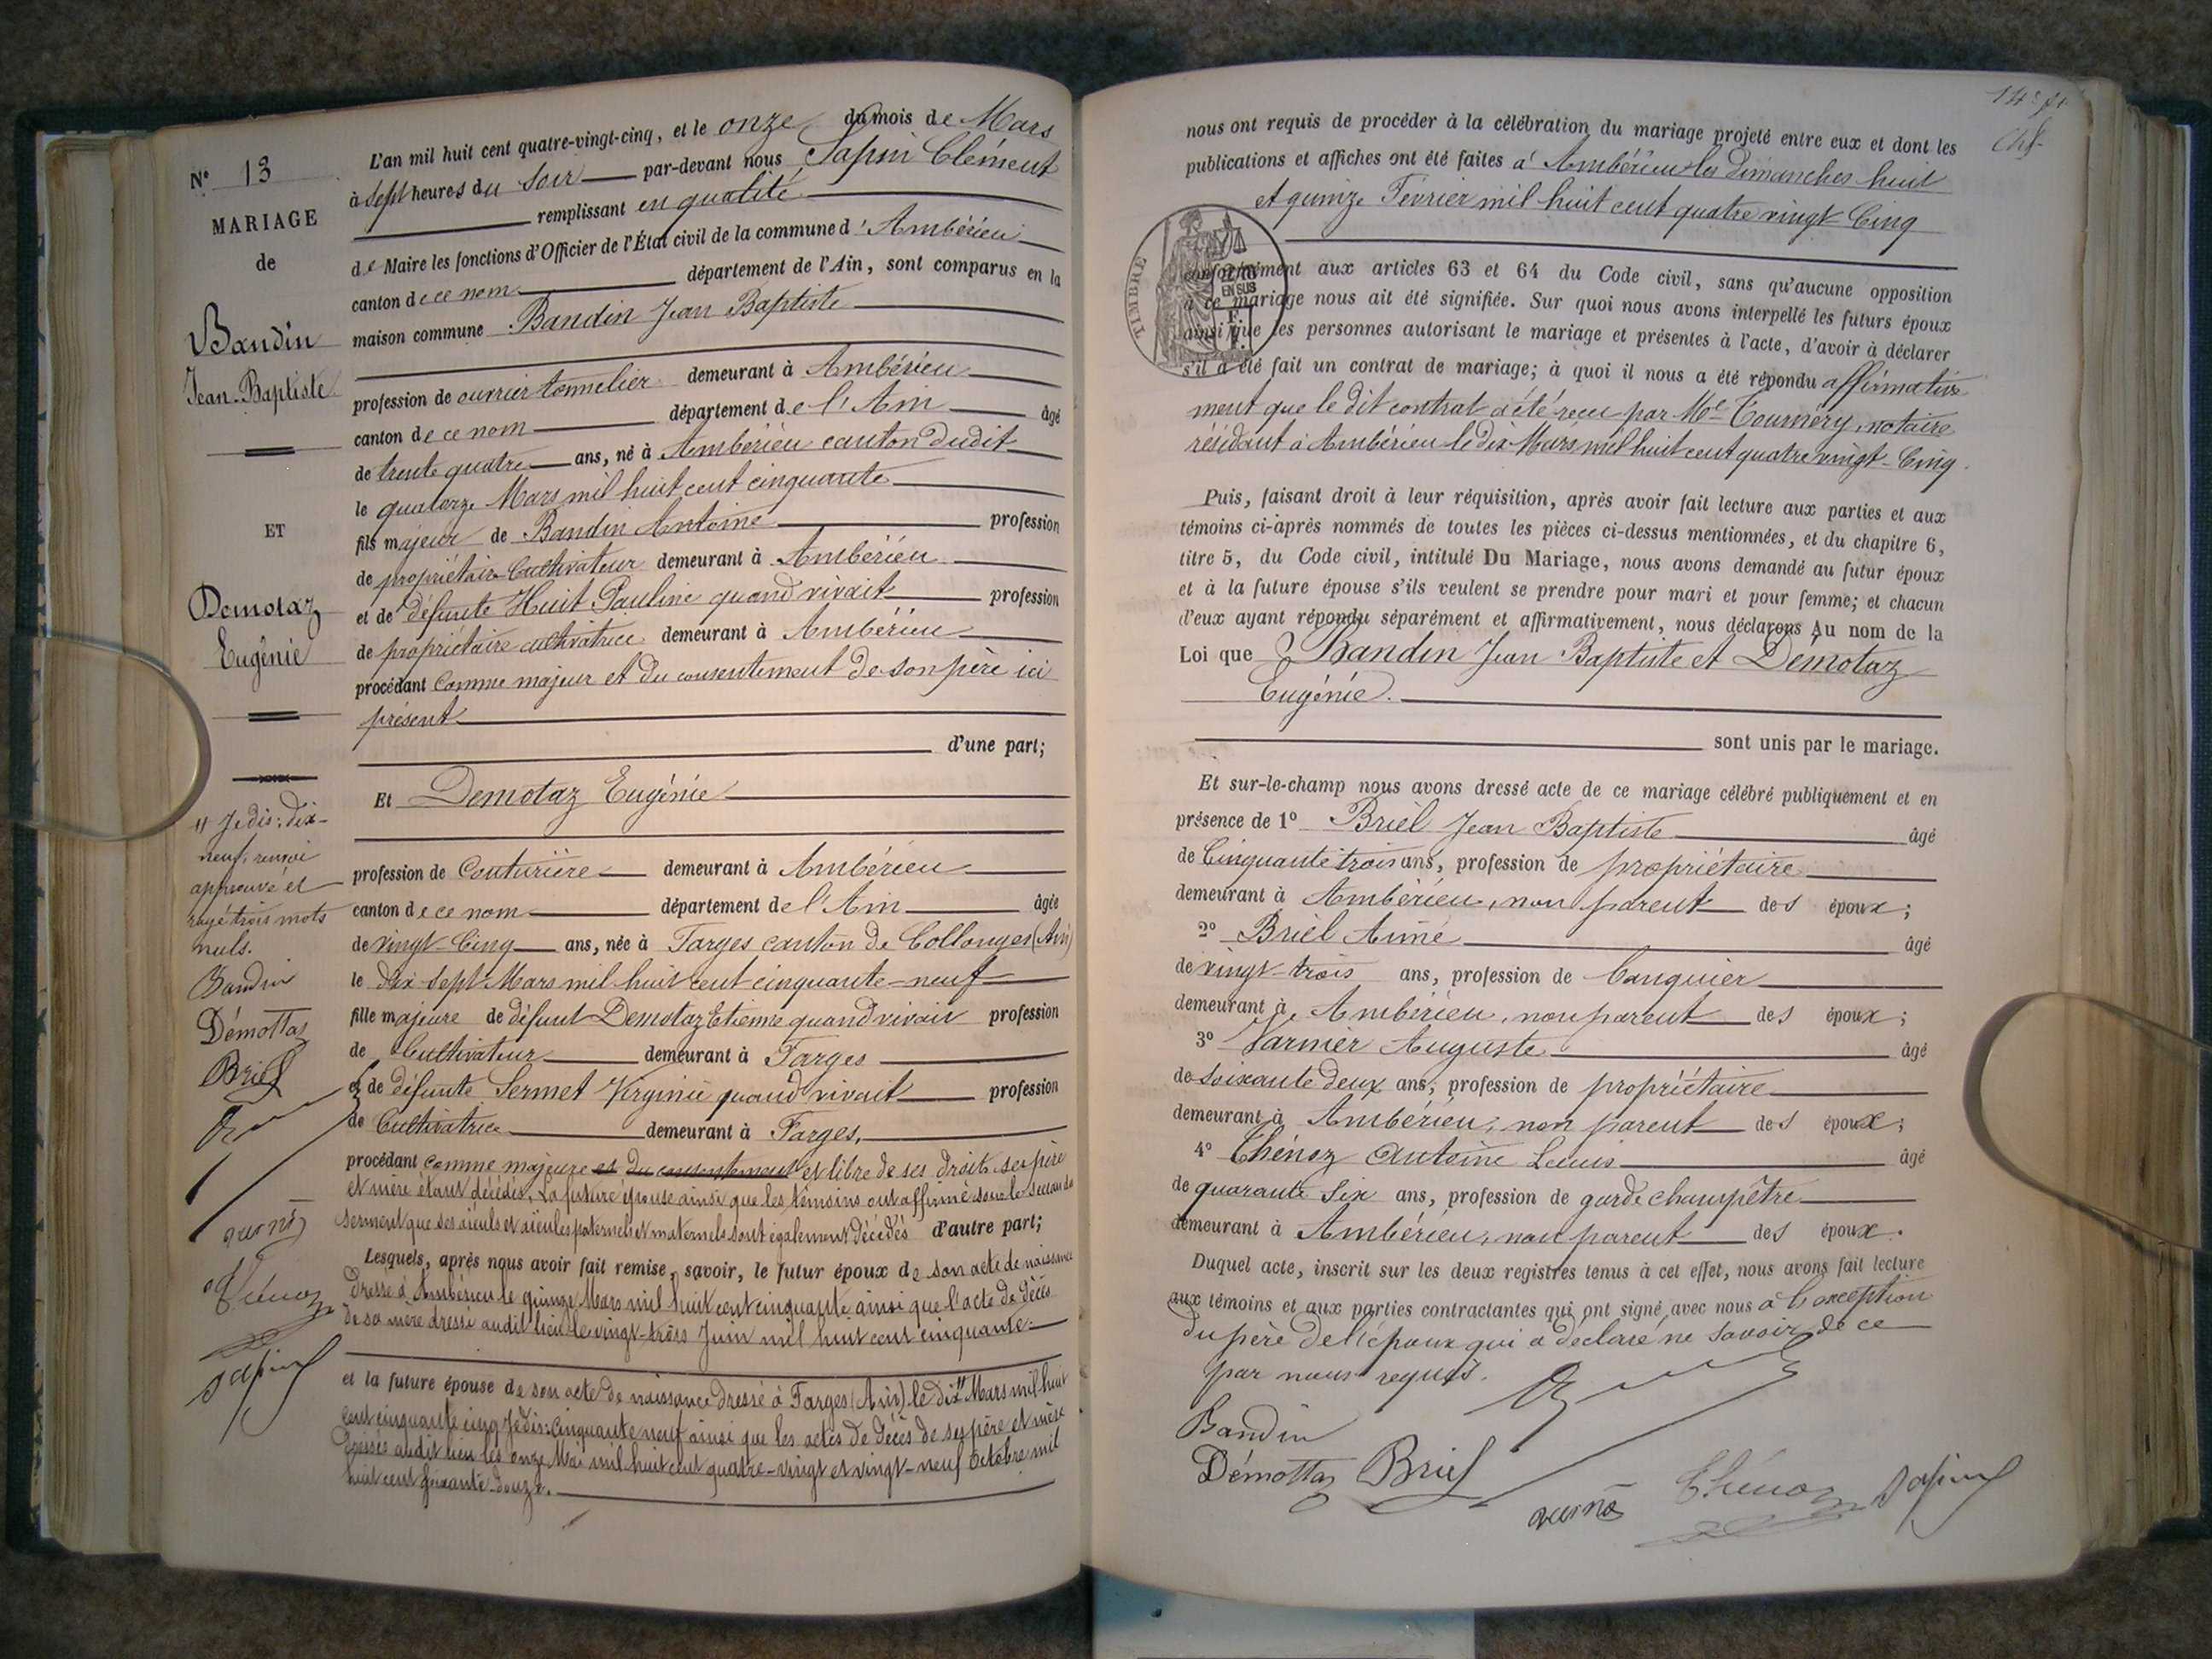 N° 13
MARIAGE
de
Bandin
Jean-Baptiste
ET
Demotaz
Eugénie
"Je dis: dix-
neuf, renvoi
approuvé et
rayé trois mots
nuls.
Bandin
Démottaz
Briel
Thénoz
Sapin
L'an mil huit cent quatre-vingt-cinq, et le onze du mois de Mars
à sept heures du Soir par-devant nous Sapin Clément
remplissant en qualité
de Maire les fonctions d'Officier de l'État civil de la commune d'Ambérieu
canton de ce nom département de l'Ain, sont comparus en la
maison commune Bandin Jean Baptiste
profession de ouvrier tonnelier demeurant à Ambérieu
canton de ce nom département de l'Ain âgé
de trente quatre ans, né à Ambérieu canton dudit
le quatorze Mars mil huit cent cinquante
fils majeur de Bandin Antoine profession
de propriétaire Cultivateur demeurant à Ambérieu
et de défunte Huit Pauline quand vivait profession
de propriétaire cultivatrice demeurant à Ambérieu
procédant comme majeur et du consentement de son père ici
présent
d'une part;
Et Demotaz Eugénie
profession de Couturière demeurant à Ambérieu
canton de ce nom département de l'Ain âgée
de vingt-Cinq ans, née à Farges canton de Collonges (Ain)
le dix-sept Mars mil huit cent cinquante-neuf
fille majeure de défunt Demotaz Etienne quand vivait profession
de Cultivateur demeurant à Farges
et de défunte Sermet Virginie quand vivait profession
de Cultivatrice demeurant à Farges,
procédant comme majeure et du consentement et libre de ses droits ses père
et mère étant décédés. La future épouse ainsi que les témoins ont affirmé sous le sceau du
serment que ses aïeuls et aïeules paternels et maternels sont également décédés d'autre part;
Lesquels, après nous avoir fait remise, savoir, le futur époux de son acte de naissance
dressé à Ambérieu le quinze Mars mil huit cent cinquante ainsi que l'acte de décès
de sa mère dressé audit lieu le vingt-trois Juin mil huit cent cinquante.
et la future épouse de son acte de naissance dressé à Farges (Ain) le dix" Mars mil huit
cent cinquante cinq Je dis: cinquante neuf ainsi que les actes de décès de ses père et mère
dressés audit lieu les onze Mai mil huit cent quatre-vingt et vingt-neuf Octobre mil
huit cent soixante-douze.
nous ont requis de procéder à la célébration du mariage projeté entre eux et dont les
publications et affiches ont été faites à Ambérieu les dimanches huit
et quinze Février mil huit cent quatre vingt Cinq
TIMBRE
EN SUS
conformément aux articles 63 et 64 du Code civil, sans qu'aucune opposition
à ce mariage nous ait été signifiée. Sur quoi nous avons interpellé les futurs époux
ainsi que les personnes autorisant le mariage et présentes à l'acte, d'avoir à déclarer
s'il a été fait un contrat de mariage; à quoi il nous a été répondu affirmative
ment que le dit contrat a été recu par Me Tournéry, notaire
résidant à Ambérieu le dix Mars mil huit cent quatre vingt-Cinq.
Puis, faisant droit à leur réquisition, après avoir fait lecture aux parties et aux
témoins ci-après nommés de toutes les pièces ci-dessus mentionnées, et du chapitre 6,
titre 5, du Code civil, intitulé Du Mariage, nous avons demandé au futur époux
et à la future épouse s'ils veulent se prendre pour mari et pour femme; et chacun
d'eux ayant répondu séparément et affirmativement, nous déclarons Au nom de la
Loi que Bandin Jean Baptiste et Démotaz
Eugénie.
sont unis par le mariage.
Et sur-le-champ nous avons dressé acte de ce mariage célébré publiquement et en
présence de 1° Briel Jean Baptiste âgé
de Cinquante trois ans, profession de propriétaire
demeurant à Ambérieu, non parent des époux;
2° Briel Aimé âgé
de vingt-trois ans, profession de banquier
demeurant à Ambérieu, non parent des époux;
3° Varnier Auguste âgé
de soixante deux ans, profession de propriétaire
demeurant à Ambérieu, non parent des époux;
4° Thénoz Antoine Louis âgé
de quarante Six ans, profession de garde champêtre
demeurant à Ambérieu, non parent des époux.
Duquel acte, inscrit sur les deux registres tenus à cet effet, nous avons fait lecture
aux témoins et aux parties contractantes qui ont signé avec nous à l'exception
du père de l'époux qui a déclaré ne savoir de ce
par nous requis.
Bandin
Démottaz Briel
Thénoz Sapin